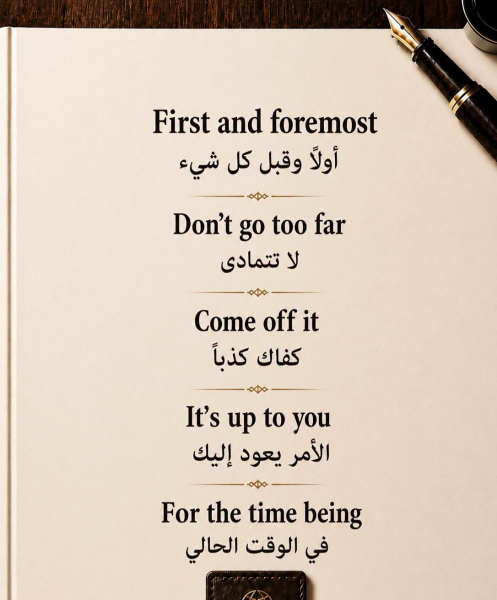 First and foremost
أولاً وقبل كل شيء
Don't go too far
لا تتمادى
Come off it
كفاك كذباً
It's up to you
الأمر يعود إليك
For the time being
في الوقت الحالي